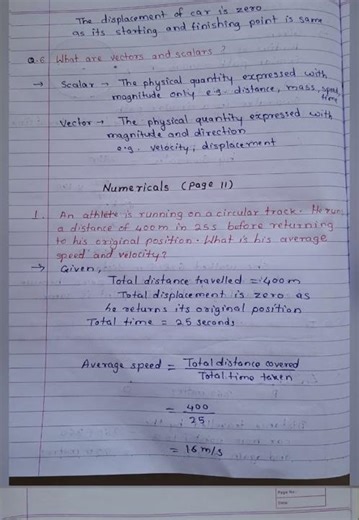 The displacement of car is zero
as its starting and finishing point is same
Q.6 What are vectors and scalars ?
→ Scalar → The physical quantity expressed with
magnitude only e.g. distance, mass, speed,
time
Vector → The physical quantity expressed with
magnitude and direction
e.g. velocity, displacement
Numericals (Page 11)
1. An athlete is running on a circular track. He runs
a distance of 400m in 25s before returning
to his original position. What is his average
speed and velocity?
→ Given,
Total distance travelled = 400m
Total displacement is zero as
he returns its original position
Total time = 25 seconds
Average speed = Total distance covered
Total time taken
= 400
25
= 16 m/s
Page No.
Date